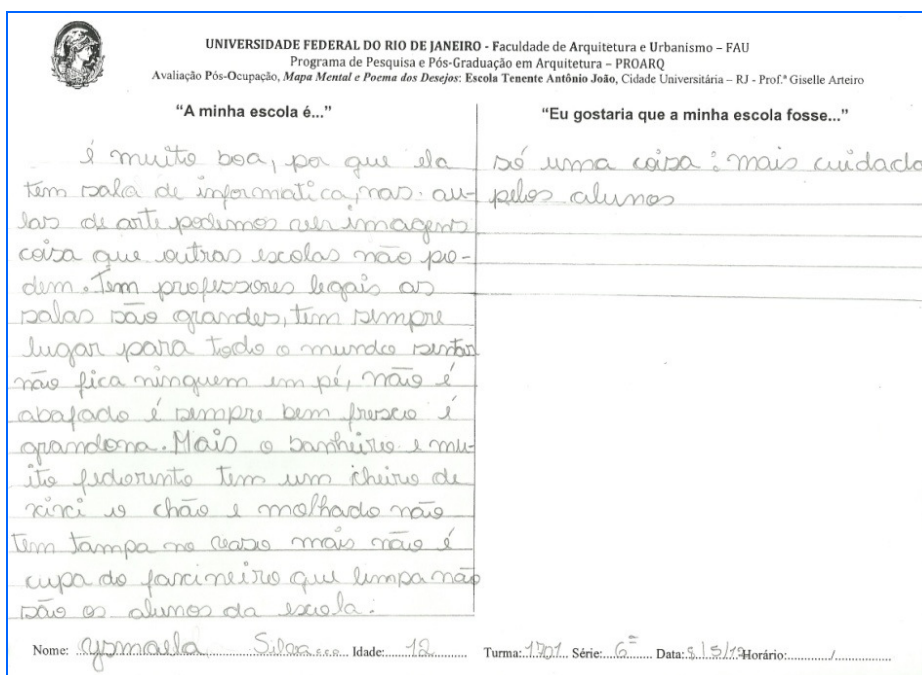 UNIVERSIDADE FEDERAL DO RIO DE JANEIRO - Faculdade de Arquitetura e Urbanismo – FAU
Programa de Pesquisa e Pós-Graduação em Arquitetura – PROARQ
Avaliação Pós-Ocupação, Mapa Mental e Poema dos Desejos: Escola Tenente Antônio João, Cidade Universitária – RJ - Prof.ª Giselle Arteiro
"A minha escola é..."
é muito boa, por que ela
tem sala de informatica, nas au-
las de arte podemos ver imagens
coisa que outras escolas não po-
dem. Tem professores legais as
salas são grandes, tem sempre
lugar para todo o mundo sentar
não fica ninguem em pé, não é
abafado é sempre bem fresco é
grandona. Mais o banheiro e mu-
ito fedorento tem um cheiro de
xixi o chão e molhado não
tem tampa no vaso mais não é
cupa do farcineiro que limpa não
são os alunos da escola.
"Eu gostaria que a minha escola fosse..."
só uma coisa: mais cuidada
pelos alunos
Nome: Silva Idade: 12 Turma: 1701 Série: 6ª Data: Horário: